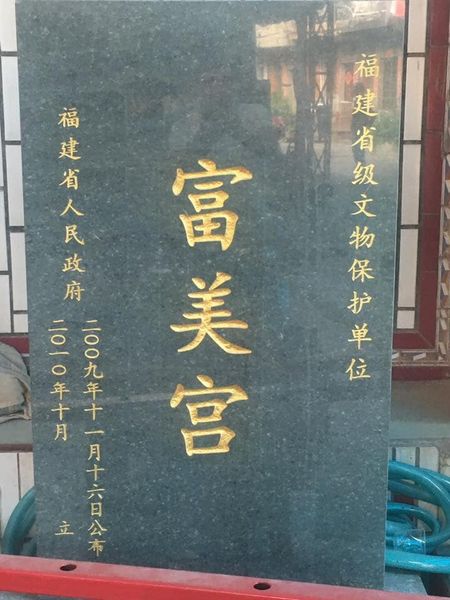 福建省级文物保护单位
富美宫
福建省人民政府
二〇〇九年十一月十六日公布
二〇一〇年十月 立